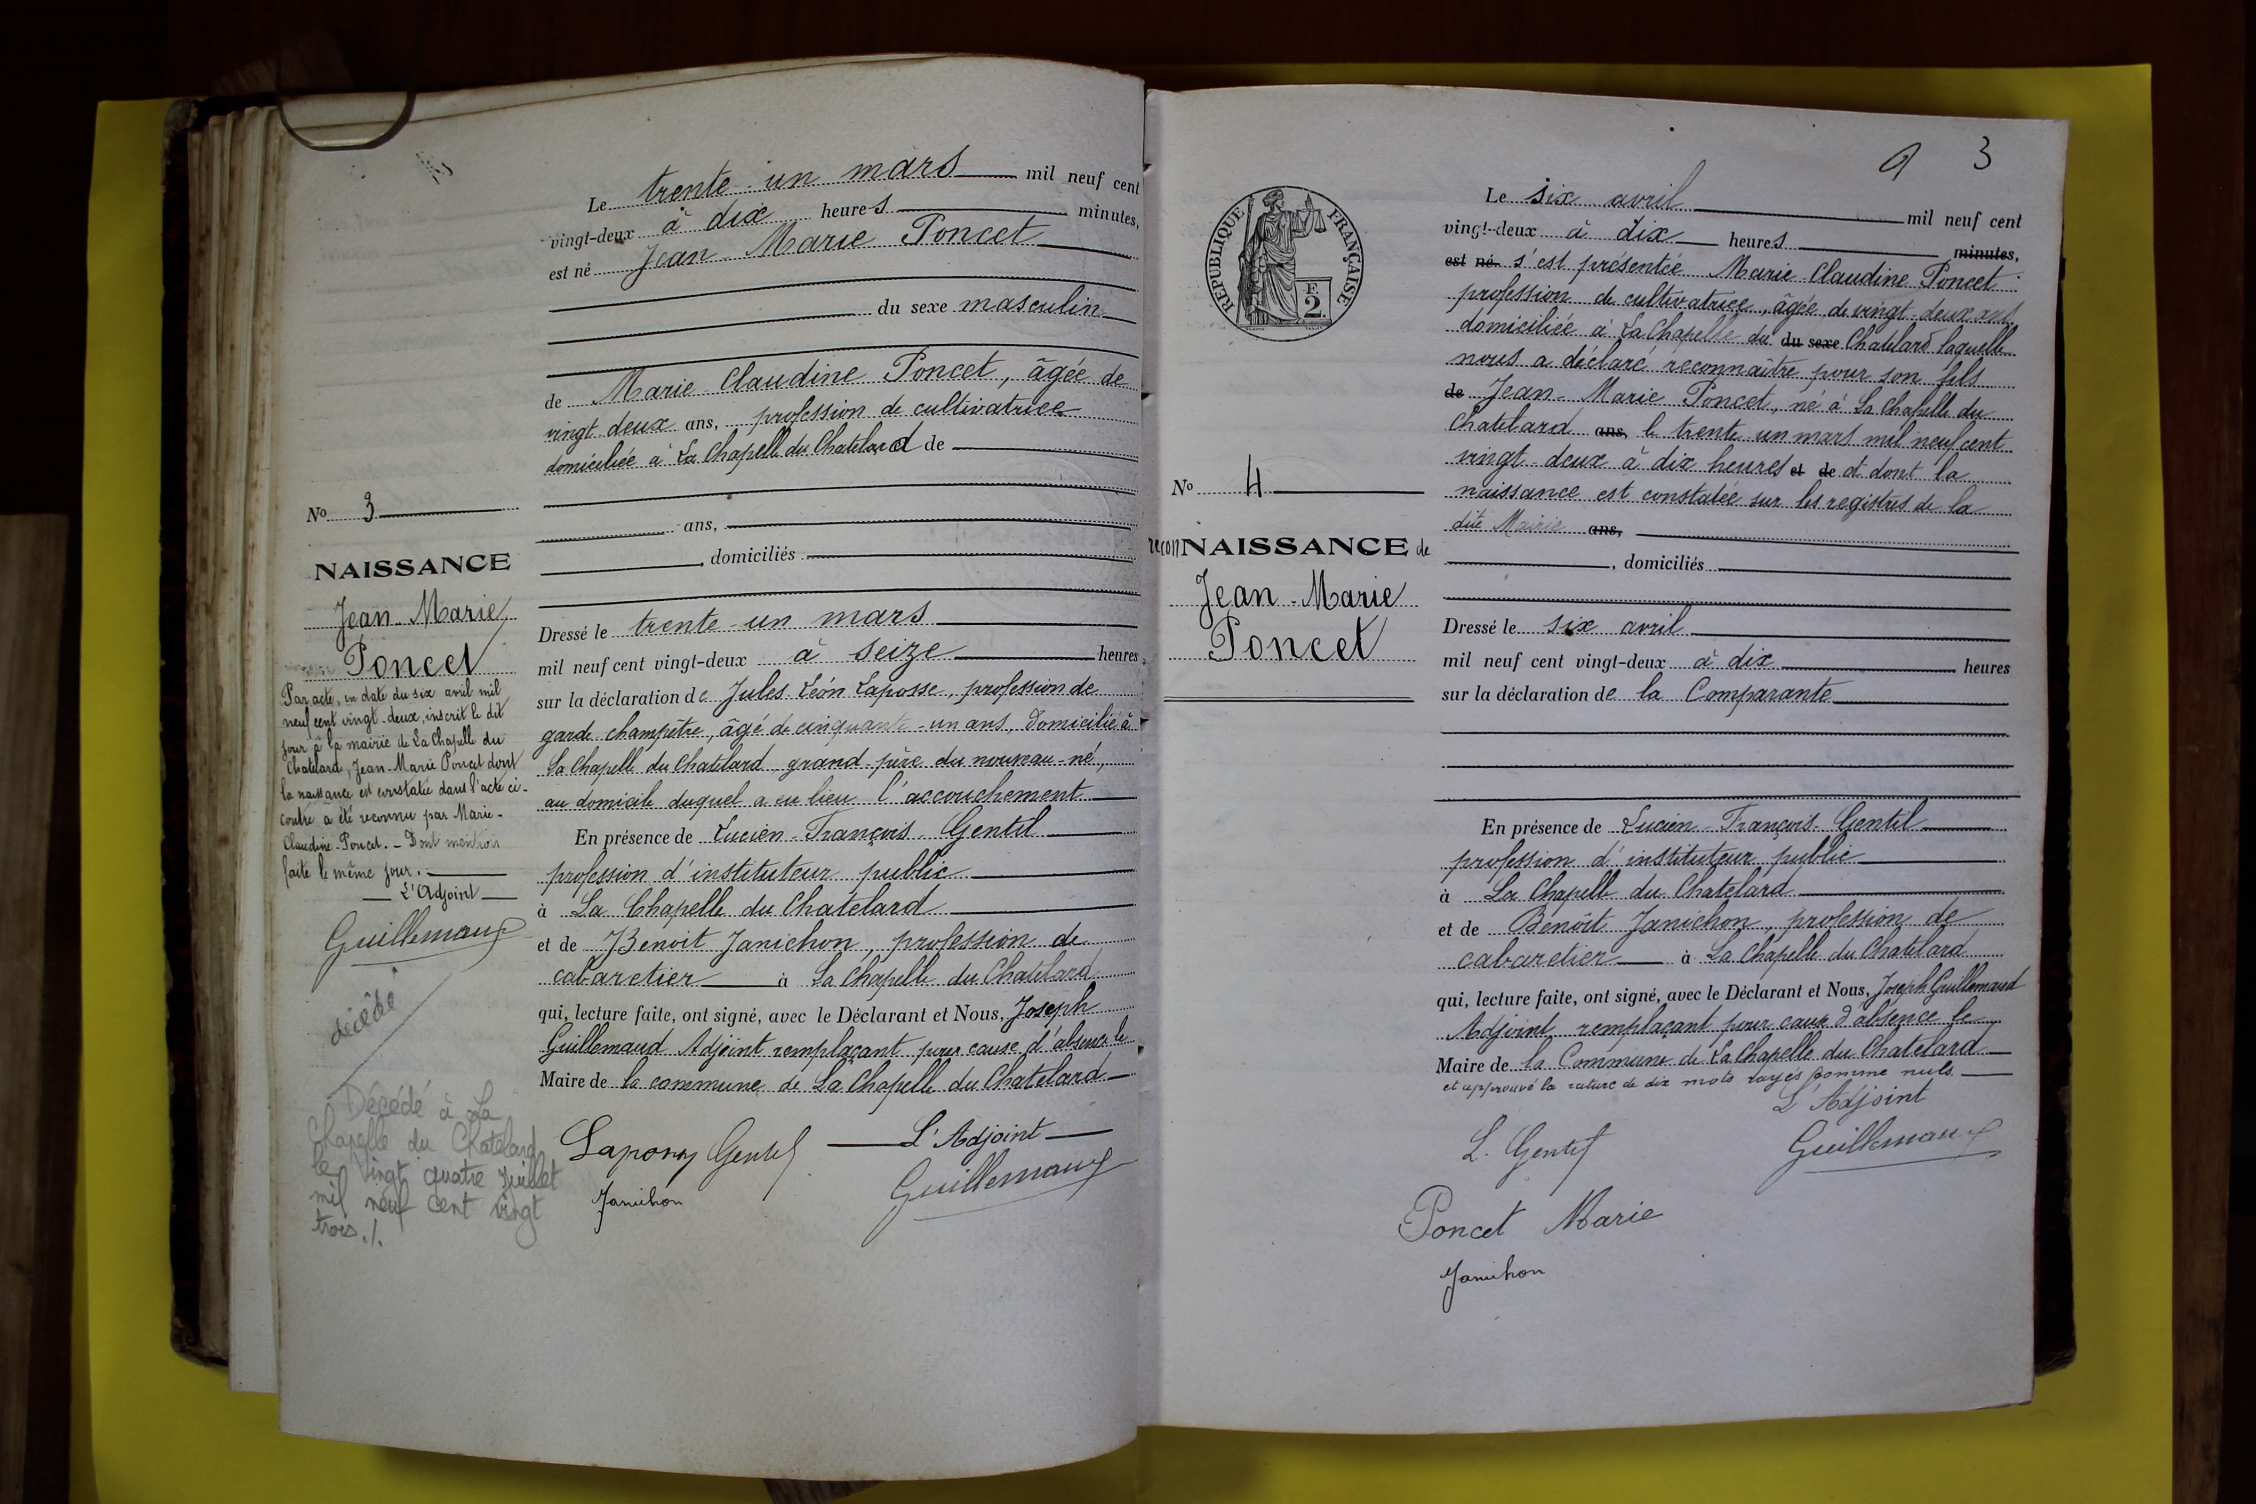 Le trente-un mars mil neuf cent
vingt-deux à dix heures minutes,
est né Jean-Marie Poncet
du sexe masculin
de Marie-Claudine Poncet, âgée de
vingt-deux ans, profession de cultivatrice
domiciliée à La Chapelle du Chatelard de
ans,
, domiciliés
Dressé le trente-un mars
mil neuf cent vingt-deux à seize heures
sur la déclaration de Jules Léon Laposse, profession de
garde champêtre, âgé de cinquante-un ans, domicilié à
La Chapelle du Chatelard grand-père du nouveau-né,
au domicile duquel a eu lieu l'accouchement
En présence de Lucien-François Gentil
profession d'instituteur public
à La Chapelle du Chatelard
et de Benoit Janichon, profession de
cabaretier à La Chapelle du Chatelard
qui, lecture faite, ont signé, avec le Déclarant et Nous, Joseph
Guillemaud Adjoint remplaçant pour cause d'absence le
Maire de la commune de La Chapelle du Chatelard
L'Adjoint
Gentil
Guillemaud
Janichon
No 3
NAISSANCE
Jean-Marie
Poncet
Par acte, en date du six avril mil
neuf cent vingt-deux, inscrit le dit
jour à la mairie de La Chapelle du
Chatelard, Jean-Marie Poncet dont
la naissance est constatée dans l'acte ci-
contre a été reconnu par Marie-
Claudine Poncet. - Dont mention
faite le même jour.
L'Adjoint
Guillemaud
décédé
Décédé à La
Chapelle du Chatelard
le vingt quatre Juillet
mil neuf cent vingt
trois ./.
9 3
RÉPUBLIQUE FRANÇAISE
E
2
No 4
reconNAISSANCE de
Jean-Marie
Poncet
Le six avril mil neuf cent
vingt-deux à dix heures minutes,
est né s'est présentée Marie-Claudine Poncet
profession de cultivatrice, âgée de vingt-deux ans
domiciliée à La Chapelle du du sexe Chatelard laquelle
nous a déclaré reconnaître pour son fils
de Jean-Marie Poncet, né à La Chapelle du
Chatelard ans, le trente un mars mil neuf cent
vingt-deux à dix heures et de et dont la
naissance est constatée sur les registres de la
dite Mairie ans,
, domiciliés
Dressé le six avril
mil neuf cent vingt-deux à dix heures
sur la déclaration de la Comparante
En présence de Lucien-François Gentil
profession d'instituteur public
à La Chapelle du Chatelard
et de Benoît Janichon, profession de
cabaretier à La Chapelle du Chatelard
qui, lecture faite, ont signé, avec le Déclarant et Nous, Joseph Guillemaud
Adjoint remplaçant pour cause d'absence le
Maire de la Commune de La Chapelle du Chatelard
et approuvé la rature de dix mots rayés comme nuls
L'Adjoint
L. Gentil
Guillemaud
Poncet Marie
Janichon